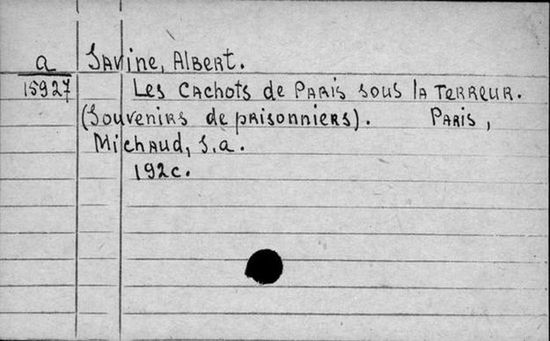 a Savine, Albert.
15927 Les Cachots de Paris sous la Terreur.
(Souvenirs de prisonniers). Paris,
Michaud, s.a.
192c.